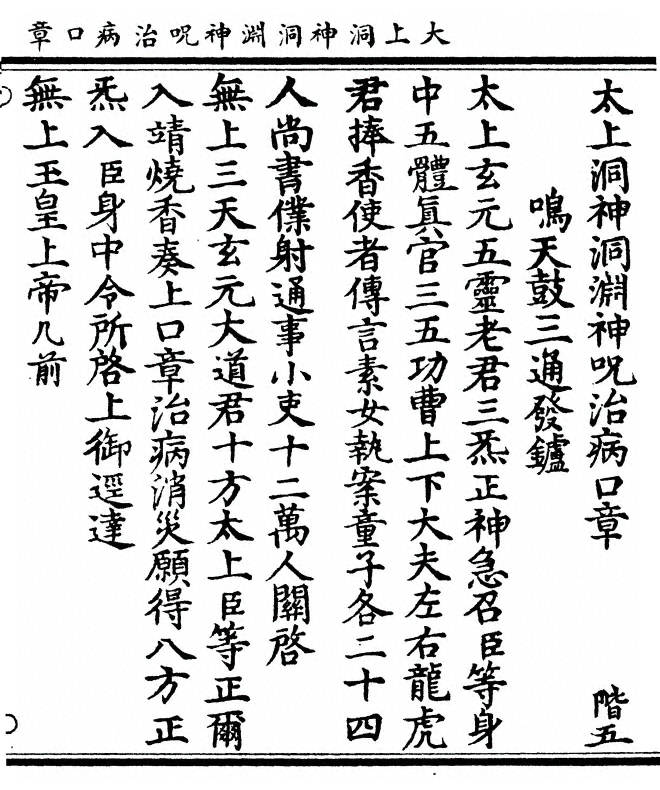 大上洞神洞淵神呪治病口章
太上洞神洞淵神呪治病口章 階五
鳴天鼓三通發鑪
太上玄元五靈老君三炁正神急召臣等身
中五體真官三五功曹上下大夫左右龍虎
君捧香使者傳言素女執案童子各二十四
人尚書僕射通事小吏十二萬人關啓
無上三天玄元大道君十方太上臣等正爾
入靖燒香奏上口章治病消災願得八方正
炁入臣身中令所啓上御逕達
無上玉皇上帝几前